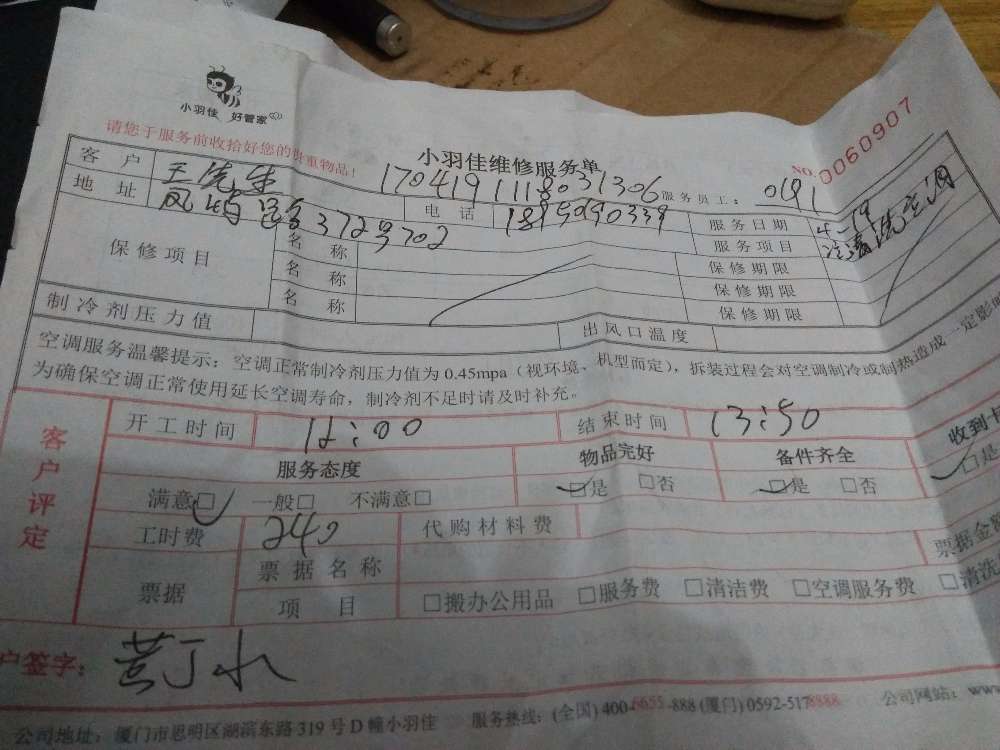 小羽佳 好管家
请您于服务前收拾好您的贵重物品！
小羽佳维修服务单
NO. 0060907
客户 王先生 1704191118031306 服务员工： 0191
地址 372号702 电话 服务日期 4-19
保修项目 名称 服务项目 清洗空调
名称 保修期限
名称 保修期限
保修期限
制冷剂压力值 出风口温度
空调服务温馨提示：空调正常制冷剂压力值为 0.45mpa（视环境、机型而定），拆装过程会对空调制冷或制热造成一定影
为确保空调正常使用延长空调寿命，制冷剂不足时请及时补充。
客户评定
开工时间 12:00 结束时间 13:50
服务态度 物品完好 备件齐全 收到卡
满意□ 一般□ 不满意□ □是 □否 □是 □否 □是
工时费 240 代购材料费
票据 票据名称 票据金
项目 □搬办公用品 □服务费 □清洁费 □空调服务费 □清洗
户签字：
公司地址：厦门市思明区湖滨东路 319 号 D 幢小羽佳 服务热线：(全国) 400-6655-888 (厦门) 0592-5178888 公司网站：www